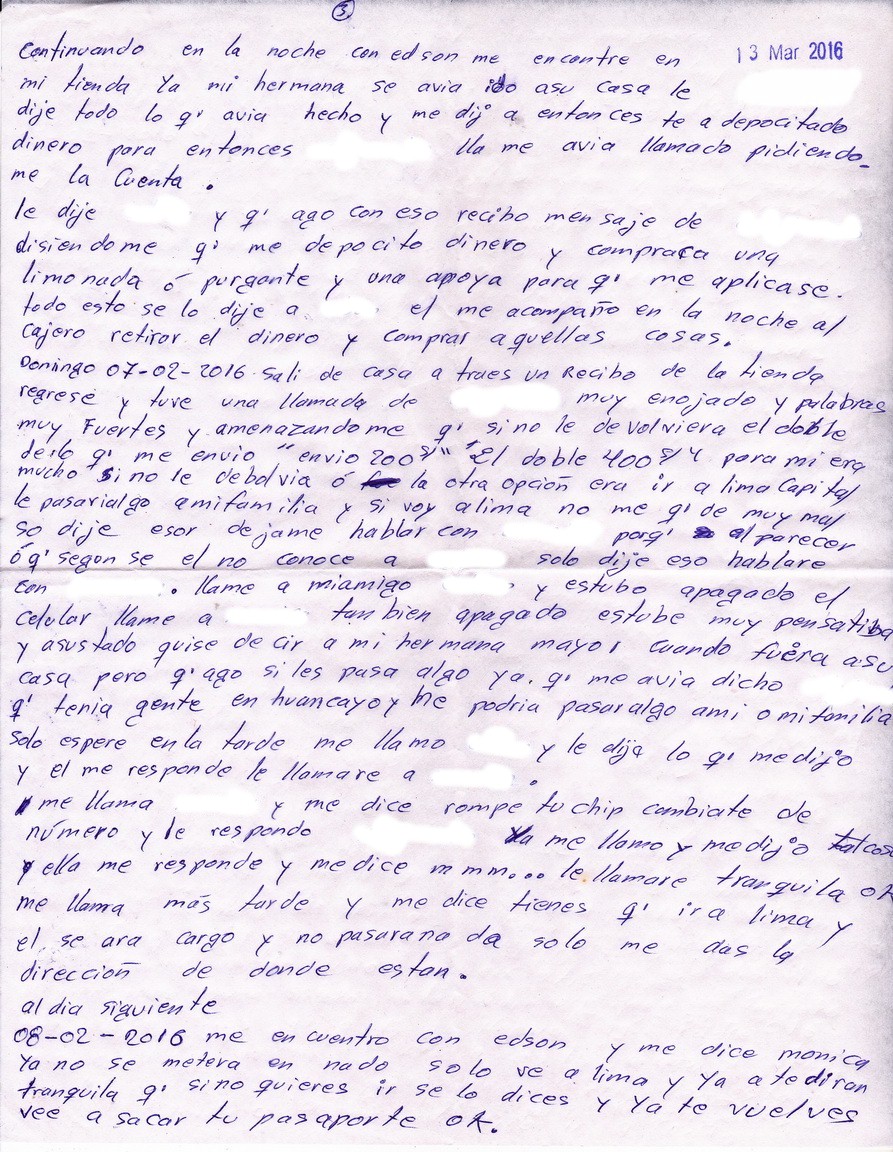 3
13 Mar 2016
Continuando en la noche con edson me encontre en
mi tienda Ya mi hermana se avia ido asu casa le
dije todo lo q' avia hecho y me dijo a entonces te a depocitado
dinero para entonces lla me avia llamado pidiendo-
me la Cuenta .
le dije y q' ago con eso recibo mensaje de
disiendome q' me depocito dinero y compraca una
limonada ó purgante y una apoya para q' me aplicase.
todo esto se lo dije a el me acompaño en la noche al
cajero retirar el dinero y comprar aquellas cosas.
Domingo 07-02-2016. Sali de casa a traes un Recibo de la tienda
regrese y tuve una llamada de muy enojado y palabras
muy Fuertes y amenazandome q' si no le devolviera el doble
de lo q' me envio "envio 200$" "El doble 400$" Y para mi era
mucho Si no le debolvia ó la otra opción era ir a lima Capital
le pasarialgo amifamilia y si voy alima no me q' de muy mal
so dije esor dejame hablar con porq' al parecer
ó q' segun se el no conoce a solo dije eso hablare
con . llame a miamigo y estubo apagado el
celular llame a tanbien apagado estube muy pensatiba
y asustado quise decir a mi hermana mayor cuando fuera asu
casa pero q' ago si les pasa algo ya. q' me avia dicho
q' tenia gente en huancayo y Me podria pasaralgo ami o mifamilia
Solo espere en la tarde me llamo y le dije lo q' medijo
y el me responde le llamare a .
me llama y me dice rompe tu chip cambiate de
número y le respondo Ya me llamo y medijo tal cosa
y ella me responde y me dice mmm... le llamare tranquila ok
me llama más tarde y me dice tienes q' ir a lima y
el se ara cargo y no pasarana da solo me das la
dirección de donde estan .
al dia siguiente
08-02-2016 me encuentro con edson y me dice monica
Ya no se metera en nado solo ve a lima y Ya a tediran
tranquila q' sino quieres ir se lo dices y Ya te vuelves
vee a sacar tu pasaporte ok.